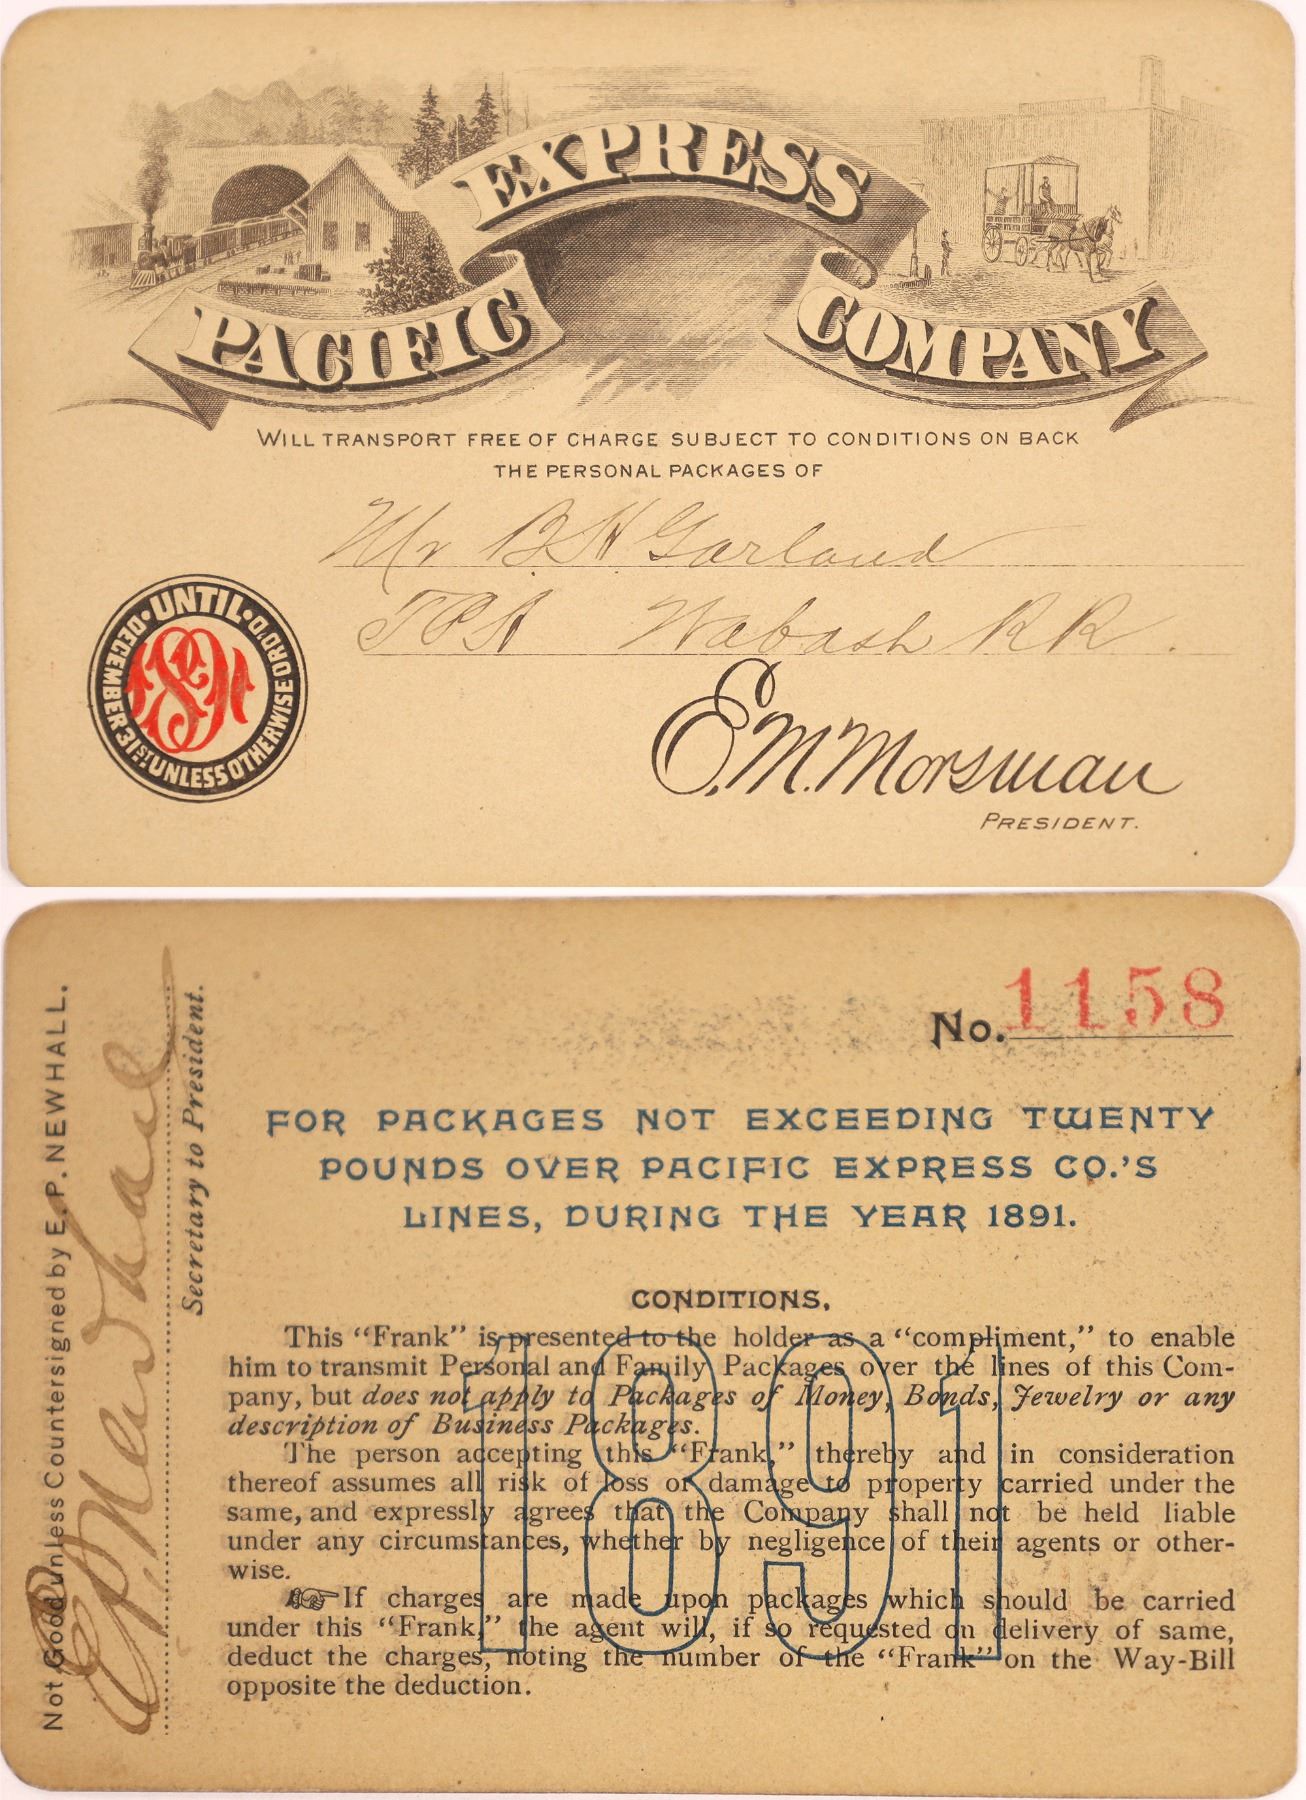 PACIFIC EXPRESS COMPANY
WILL TRANSPORT FREE OF CHARGE SUBJECT TO CONDITIONS ON BACK
THE PERSONAL PACKAGES OF
Mr B H Garland
TPA Wabash RR.
UNTIL DECEMBER 31ST. UNLESS OTHERWISE ORD'D.
1891
E. M. Morsman
PRESIDENT.
No. 1158
FOR PACKAGES NOT EXCEEDING TWENTY
POUNDS OVER PACIFIC EXPRESS CO.'S
LINES, DURING THE YEAR 1891.
CONDITIONS.
This “Frank” is presented to the holder as a “compliment,” to enable
him to transmit Personal and Family Packages over the lines of this Com-
pany, but does not apply to Packages of Money, Bonds, Jewelry or any
description of Business Packages.
The person accepting this “Frank,” thereby and in consideration
thereof assumes all risk of loss or damage to property carried under the
same, and expressly agrees that the Company shall not be held liable
under any circumstances, whether by negligence of their agents or other-
wise.
☞ If charges are made upon packages which should be carried
under this “Frank,” the agent will, if so requested on delivery of same,
deduct the charges, noting the number of the “Frank” on the Way-Bill
opposite the deduction.
1891
Not Good unless Countersigned by E. P. NEWHALL.
E P Newhall
Secretary to President.